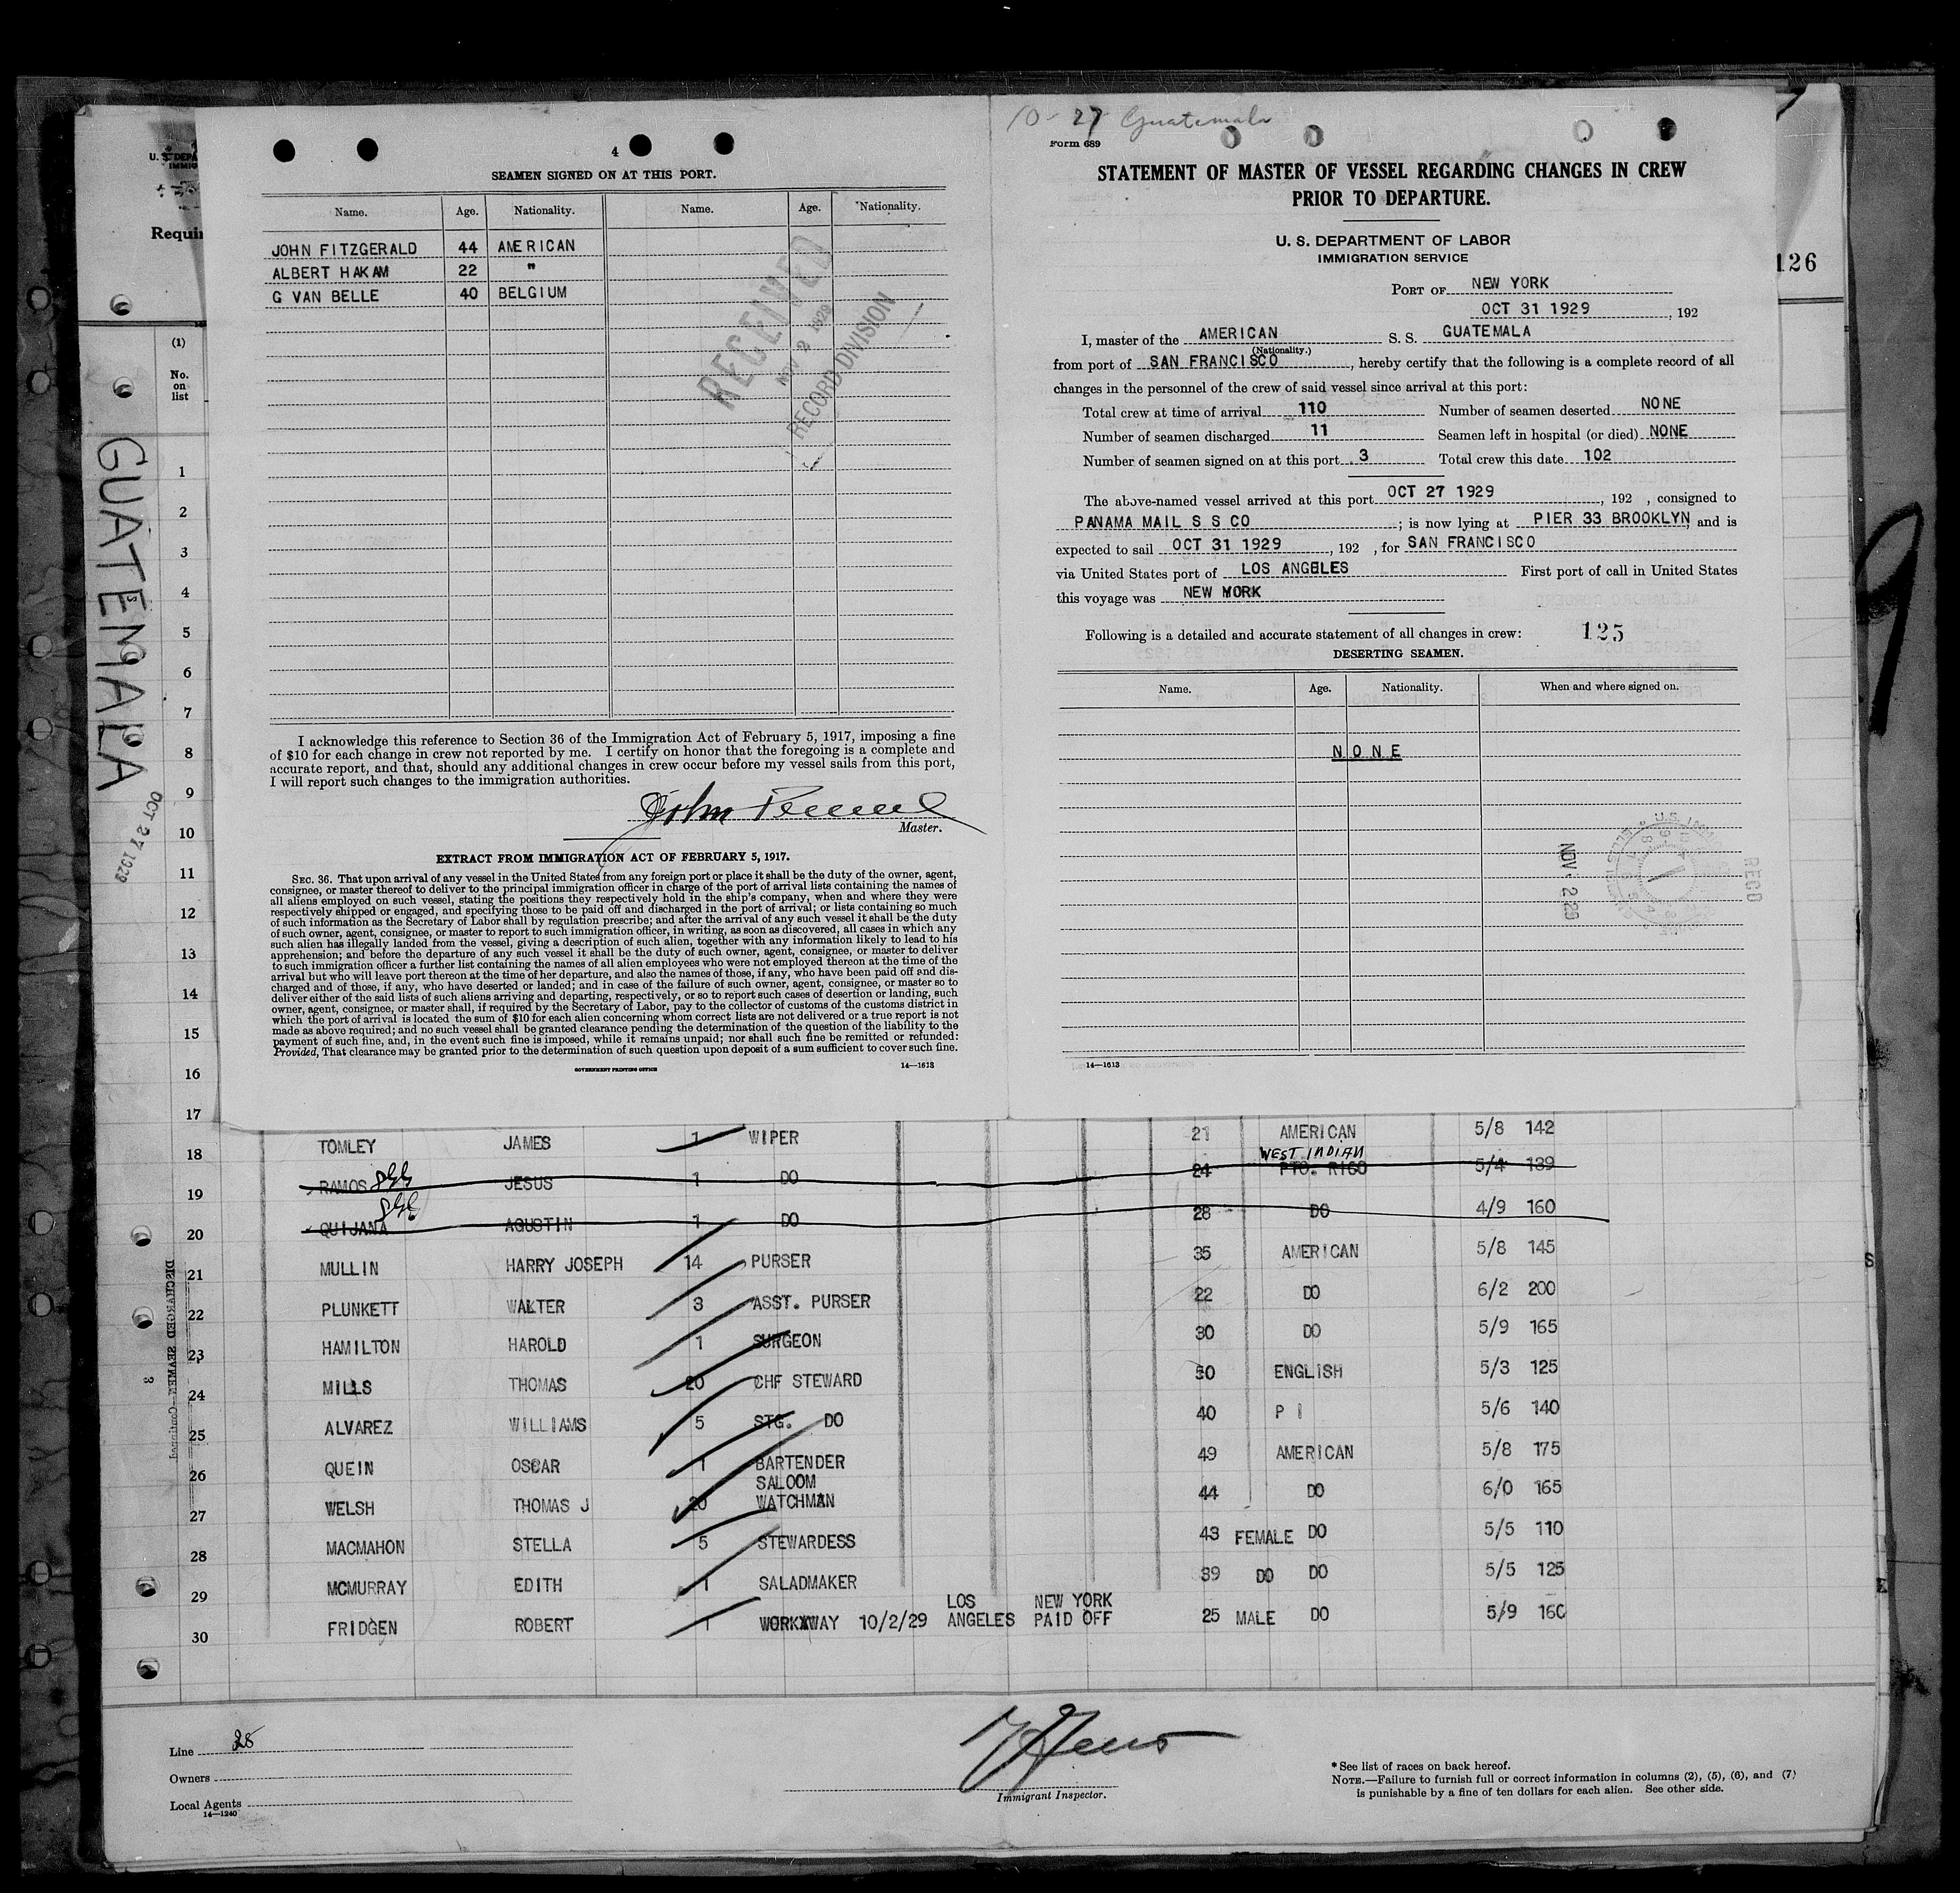 10-27 Guatemala
4
SEAMEN SIGNED ON AT THIS PORT.
Name. Age. Nationality. Name. Age. Nationality.
JOHN FITZGERALD 44 AMERICAN
ALBERT HAKAM 22 "
G VAN BELLE 40 BELGIUM
RECEIVED
NOV 2 1929
RECORD DIVISION
I acknowledge this reference to Section 36 of the Immigration Act of February 5, 1917, imposing a fine
of $10 for each change in crew not reported by me. I certify on honor that the foregoing is a complete and
accurate report, and that, should any additional changes in crew occur before my vessel sails from this port,
I will report such changes to the immigration authorities.
Master.
EXTRACT FROM IMMIGRATION ACT OF FEBRUARY 5, 1917.
SEC. 36. That upon arrival of any vessel in the United States from any foreign port or place it shall be the duty of the owner, agent,
consignee, or master thereof to deliver to the principal immigration officer in charge of the port of arrival lists containing the names of
all aliens employed on such vessel, stating the positions they respectively hold in the ship's company, when and where they were
respectively shipped or engaged, and specifying those to be paid off and discharged in the port of arrival; or lists containing so much
of such information as the Secretary of Labor shall by regulation prescribe; and after the arrival of any such vessel it shall be the duty
of such owner, agent, consignee, or master to report to such immigration officer, in writing, as soon as discovered, all cases in which any
such alien has illegally landed from the vessel, giving a description of such alien, together with any information likely to lead to his
apprehension; and before the departure of any such vessel it shall be the duty of such owner, agent, consignee, or master to deliver
to such immigration officer a further list containing the names of all alien employees who were not employed thereon at the time of the
arrival but who will leave port thereon at the time of her departure, and also the names of those, if any, who have been paid off and dis-
charged and of those, if any, who have deserted or landed; and in case of the failure of such owner, agent, consignee, or master so to
deliver either of the said lists of such aliens arriving and departing, respectively, or so to report such cases of desertion or landing, such
owner, agent, consignee, or master shall, if required by the Secretary of Labor, pay to the collector of customs of the customs district in
which the port of arrival is located the sum of $10 for each alien concerning whom correct lists are not delivered or a true report is not
made as above required; and no such vessel shall be granted clearance pending the determination of the question of the liability to the
payment of such fine, and, in the event such fine is imposed, while it remains unpaid; nor shall such fine be remitted or refunded:
Provided, That clearance may be granted prior to the determination of such question upon deposit of a sum sufficient to cover such fine.
GOVERNMENT PRINTING OFFICE 14—1613
Form 689
STATEMENT OF MASTER OF VESSEL REGARDING CHANGES IN CREW
PRIOR TO DEPARTURE.
U. S. DEPARTMENT OF LABOR
IMMIGRATION SERVICE
PORT OF NEW YORK
OCT 31 1929, 192
I, master of the AMERICAN S. S. GUATEMALA
(Nationality.)
from port of SAN FRANCISCO, hereby certify that the following is a complete record of all
changes in the personnel of the crew of said vessel since arrival at this port:
Total crew at time of arrival 110 Number of seamen deserted NONE
Number of seamen discharged 11 Seamen left in hospital (or died) NONE
Number of seamen signed on at this port 3 Total crew this date 102
The above-named vessel arrived at this port OCT 27 1929, 192 , consigned to
PANAMA MAIL S S CO; is now lying at PIER 33 BROOKLYN, and is
expected to sail OCT 31 1929, 192 , for SAN FRANCISCO
via United States port of LOS ANGELES First port of call in United States
this voyage was NEW YORK
Following is a detailed and accurate statement of all changes in crew: 125
DESERTING SEAMEN.
Name. Age. Nationality. When and where signed on.
NONE
NOV 2 29
RECD
14—1613
126
U. S. DEPA
IMMIG
Requi
(1)
No.
on
list
GUATEMALA
OCT 27 1929
1
2
3
4
5
6
7
8
9
10
11
12
13
14
15
16
17
18 TOMLEY JAMES 1 WIPER 21 AMERICAN 5/8 142
WEST INDIAN
19 RAMOS JESUS 1 DO 24 PTO. RICO 5/4 139
20 QUIJANA AGUSTIN 1 DO 28 DO 4/9 160
21 MULLIN HARRY JOSEPH 14 PURSER 35 AMERICAN 5/8 145
22 PLUNKETT WALTER 3 ASST. PURSER 22 DO 6/2 200
23 HAMILTON HAROLD 1 SURGEON 30 DO 5/9 165
24 MILLS THOMAS 20 CHF STEWARD 50 ENGLISH 5/3 125
25 ALVAREZ WILLIAMS 5 STG. DO 40 P I 5/6 140
26 QUEIN OSCAR 1 BARTENDER 49 AMERICAN 5/8 175
SALOOM
27 WELSH THOMAS J 20 WATCHMAN 44 DO 6/0 165
28 MACMAHON STELLA 5 STEWARDESS 43 FEMALE DO 5/5 110
29 MCMURRAY EDITH 1 SALADMAKER 39 DO DO 5/5 125
LOS NEW YORK
30 FRIDGEN ROBERT 1 WORKAWAY 10/2/29 ANGELES PAID OFF 25 MALE DO 5/9 160
DISCHARGED SEAMEN—Continued.
3
Line
Owners
Local Agents
14—1240
Immigrant Inspector.
* See list of races on back hereof.
NOTE.—Failure to furnish full or correct information in columns (2), (5), (6), and (7)
is punishable by a fine of ten dollars for each alien. See other side.